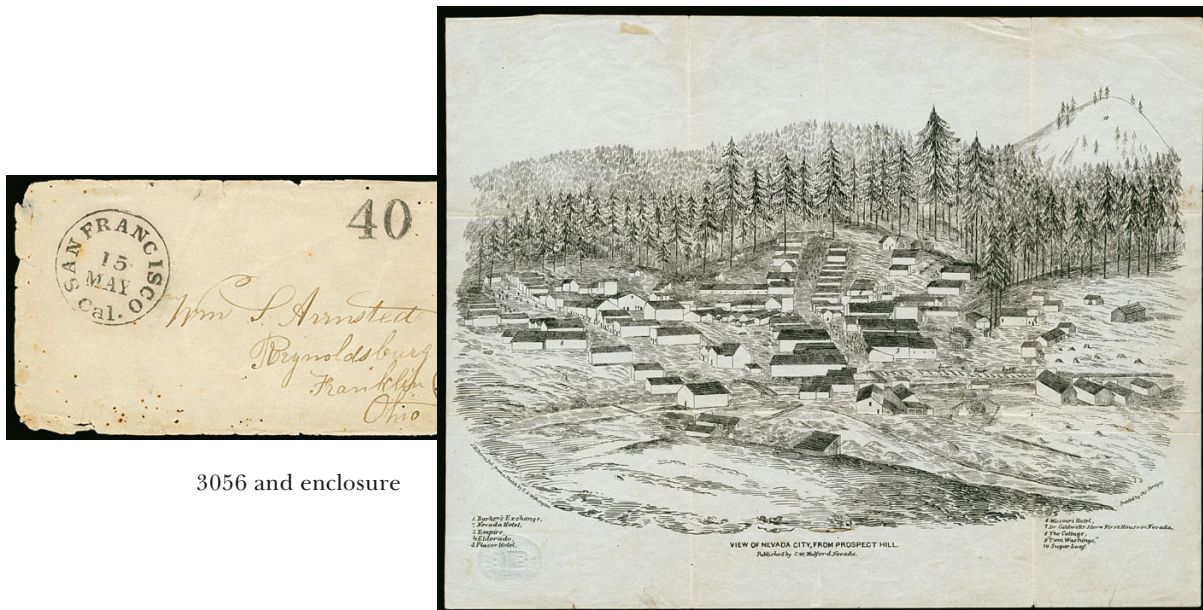 SAN FRANCISCO
15
MAY
Cal.
40
Wm S. Armsted
Reynoldsburg
Franklin
Ohio
3056 and enclosure
1 Barker's Exchange,
2 Nevada Hotel,
3 Empire,
4 Eldorado,
5 Placer Hotel,
VIEW OF NEVADA CITY, FROM PROSPECT HILL.
Published by C.W. Mulford, Nevada.
6 Missouri Hotel,
7 Dr Caldwells Store First House in Nevada,
8 The Cottage,
9 "Tom Washings,"
10 Sugar Loaf.